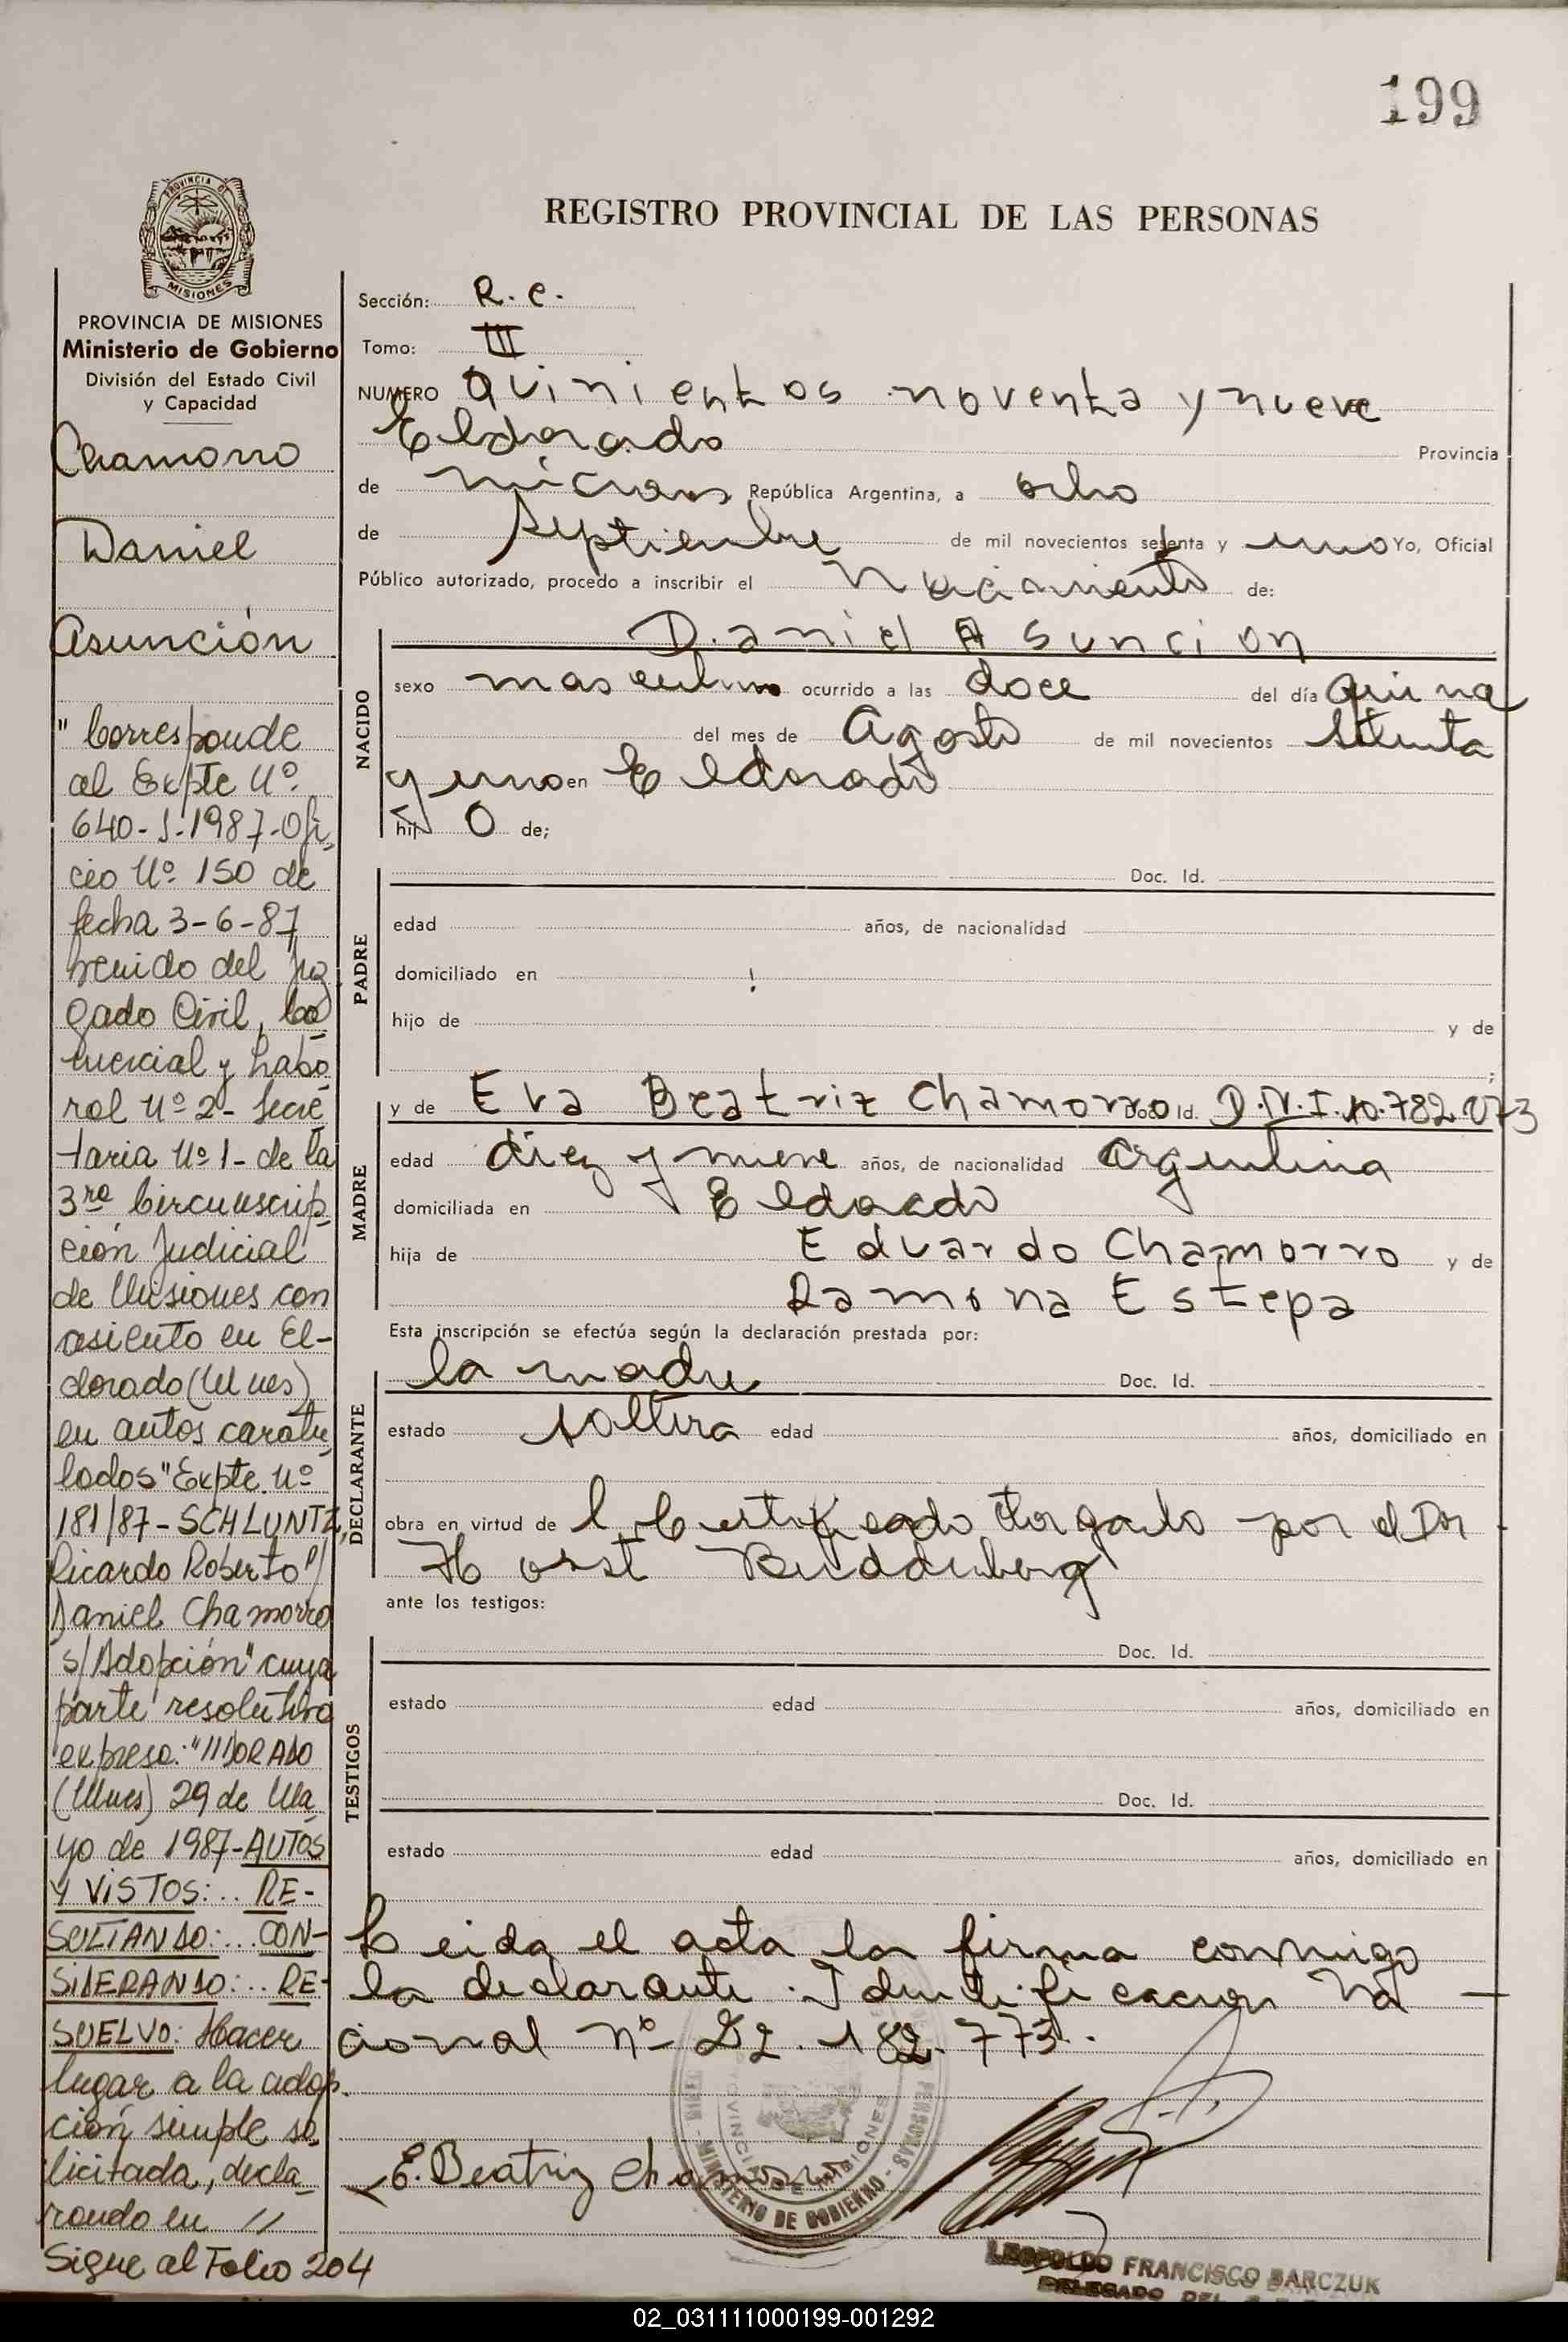 199
PROVINCIA DE
MISIONES
REGISTRO PROVINCIAL DE LAS PERSONAS
PROVINCIA DE MISIONES
Ministerio de Gobierno
División del Estado Civil
y Capacidad
Chamorro
Daniel
Asunción
"Corresponde
al Expte Nº
640-J-1987-Ofi
cio Nº 150 de
fecha 3-6-87
venido del Juz
gado Civil, Co
mercial y Labo
ral Nº 2- Secre
taria Nº 1- de la
3ra Circunscrip
ción Judicial
de Misiones con
asiento en El-
dorado (Mnes)
en autos caratu
lados "Expte. Nº
181/87-SCHLUNTZ,
Ricardo Roberto s/
Daniel Chamorro
s/Adopción" cuya
parte resolutiva
expresa: "///DORADO
(Mnes) 29 de Ma
yo de 1987-AUTOS
Y VISTOS:.. RE-
SULTANDO:... CON-
SIDERANDO:.. RE-
SUELVO: Hacer
lugar a la adop
ción simple so
licitada, decla
rando en //
Sigue al Folio 204
Sección: R. C.
Tomo: III
NUMERO Quinientos noventa y nueve
Eldorado Provincia
de Misiones República Argentina, a ocho
de Septiembre de mil novecientos setenta y uno Yo, Oficial
Público autorizado, procedo a inscribir el Nacimiento de:
NACIDO
Daniel Asuncion
sexo masculino ocurrido a las doce del día quince
del mes de Agosto de mil novecientos setenta
y uno en Eldorado
hij o de;
PADRE
Doc. Id.
edad años, de nacionalidad
domiciliado en
hijo de y de
;
MADRE
y de Eva Beatriz Chamorro Doc. Id. D.N.I. 10.782.073
edad diez y nueve años, de nacionalidad Argentina
domiciliada en Eldorado
hija de Eduardo Chamorro y de
Ramona Estepa
Esta inscripción se efectúa según la declaración prestada por:
DECLARANTE
la madre Doc. Id.
estado soltera edad años, domiciliado en
obra en virtud de l Certificado otorgado por el Dor
Horst Buddenberg
ante los testigos:
TESTIGOS
Doc. Id.
estado edad años, domiciliado en
Doc. Id.
estado edad años, domiciliado en
Leida el acta la firma conmigo
la declarante. Identificacion Na
cional nº 22.182.773.
E. Beatriz Chamorro
MINISTERIO DE GOBIERNO
PERSONAS
MISIONES
LEOPOLDO FRANCISCO BARCZUK
DELEGADO DEL
02_031111000199-001292